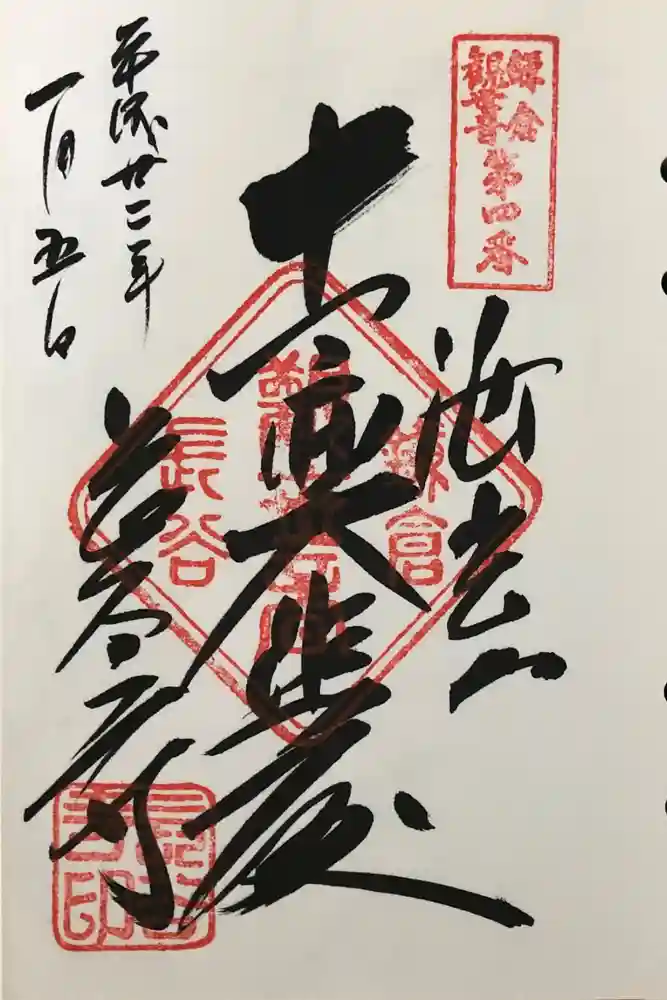 鎌倉
観世音
第四番
海光山
十一面大悲殿
長谷寺
平成廿二年
一月五日
鎌倉
長谷
長谷寺印